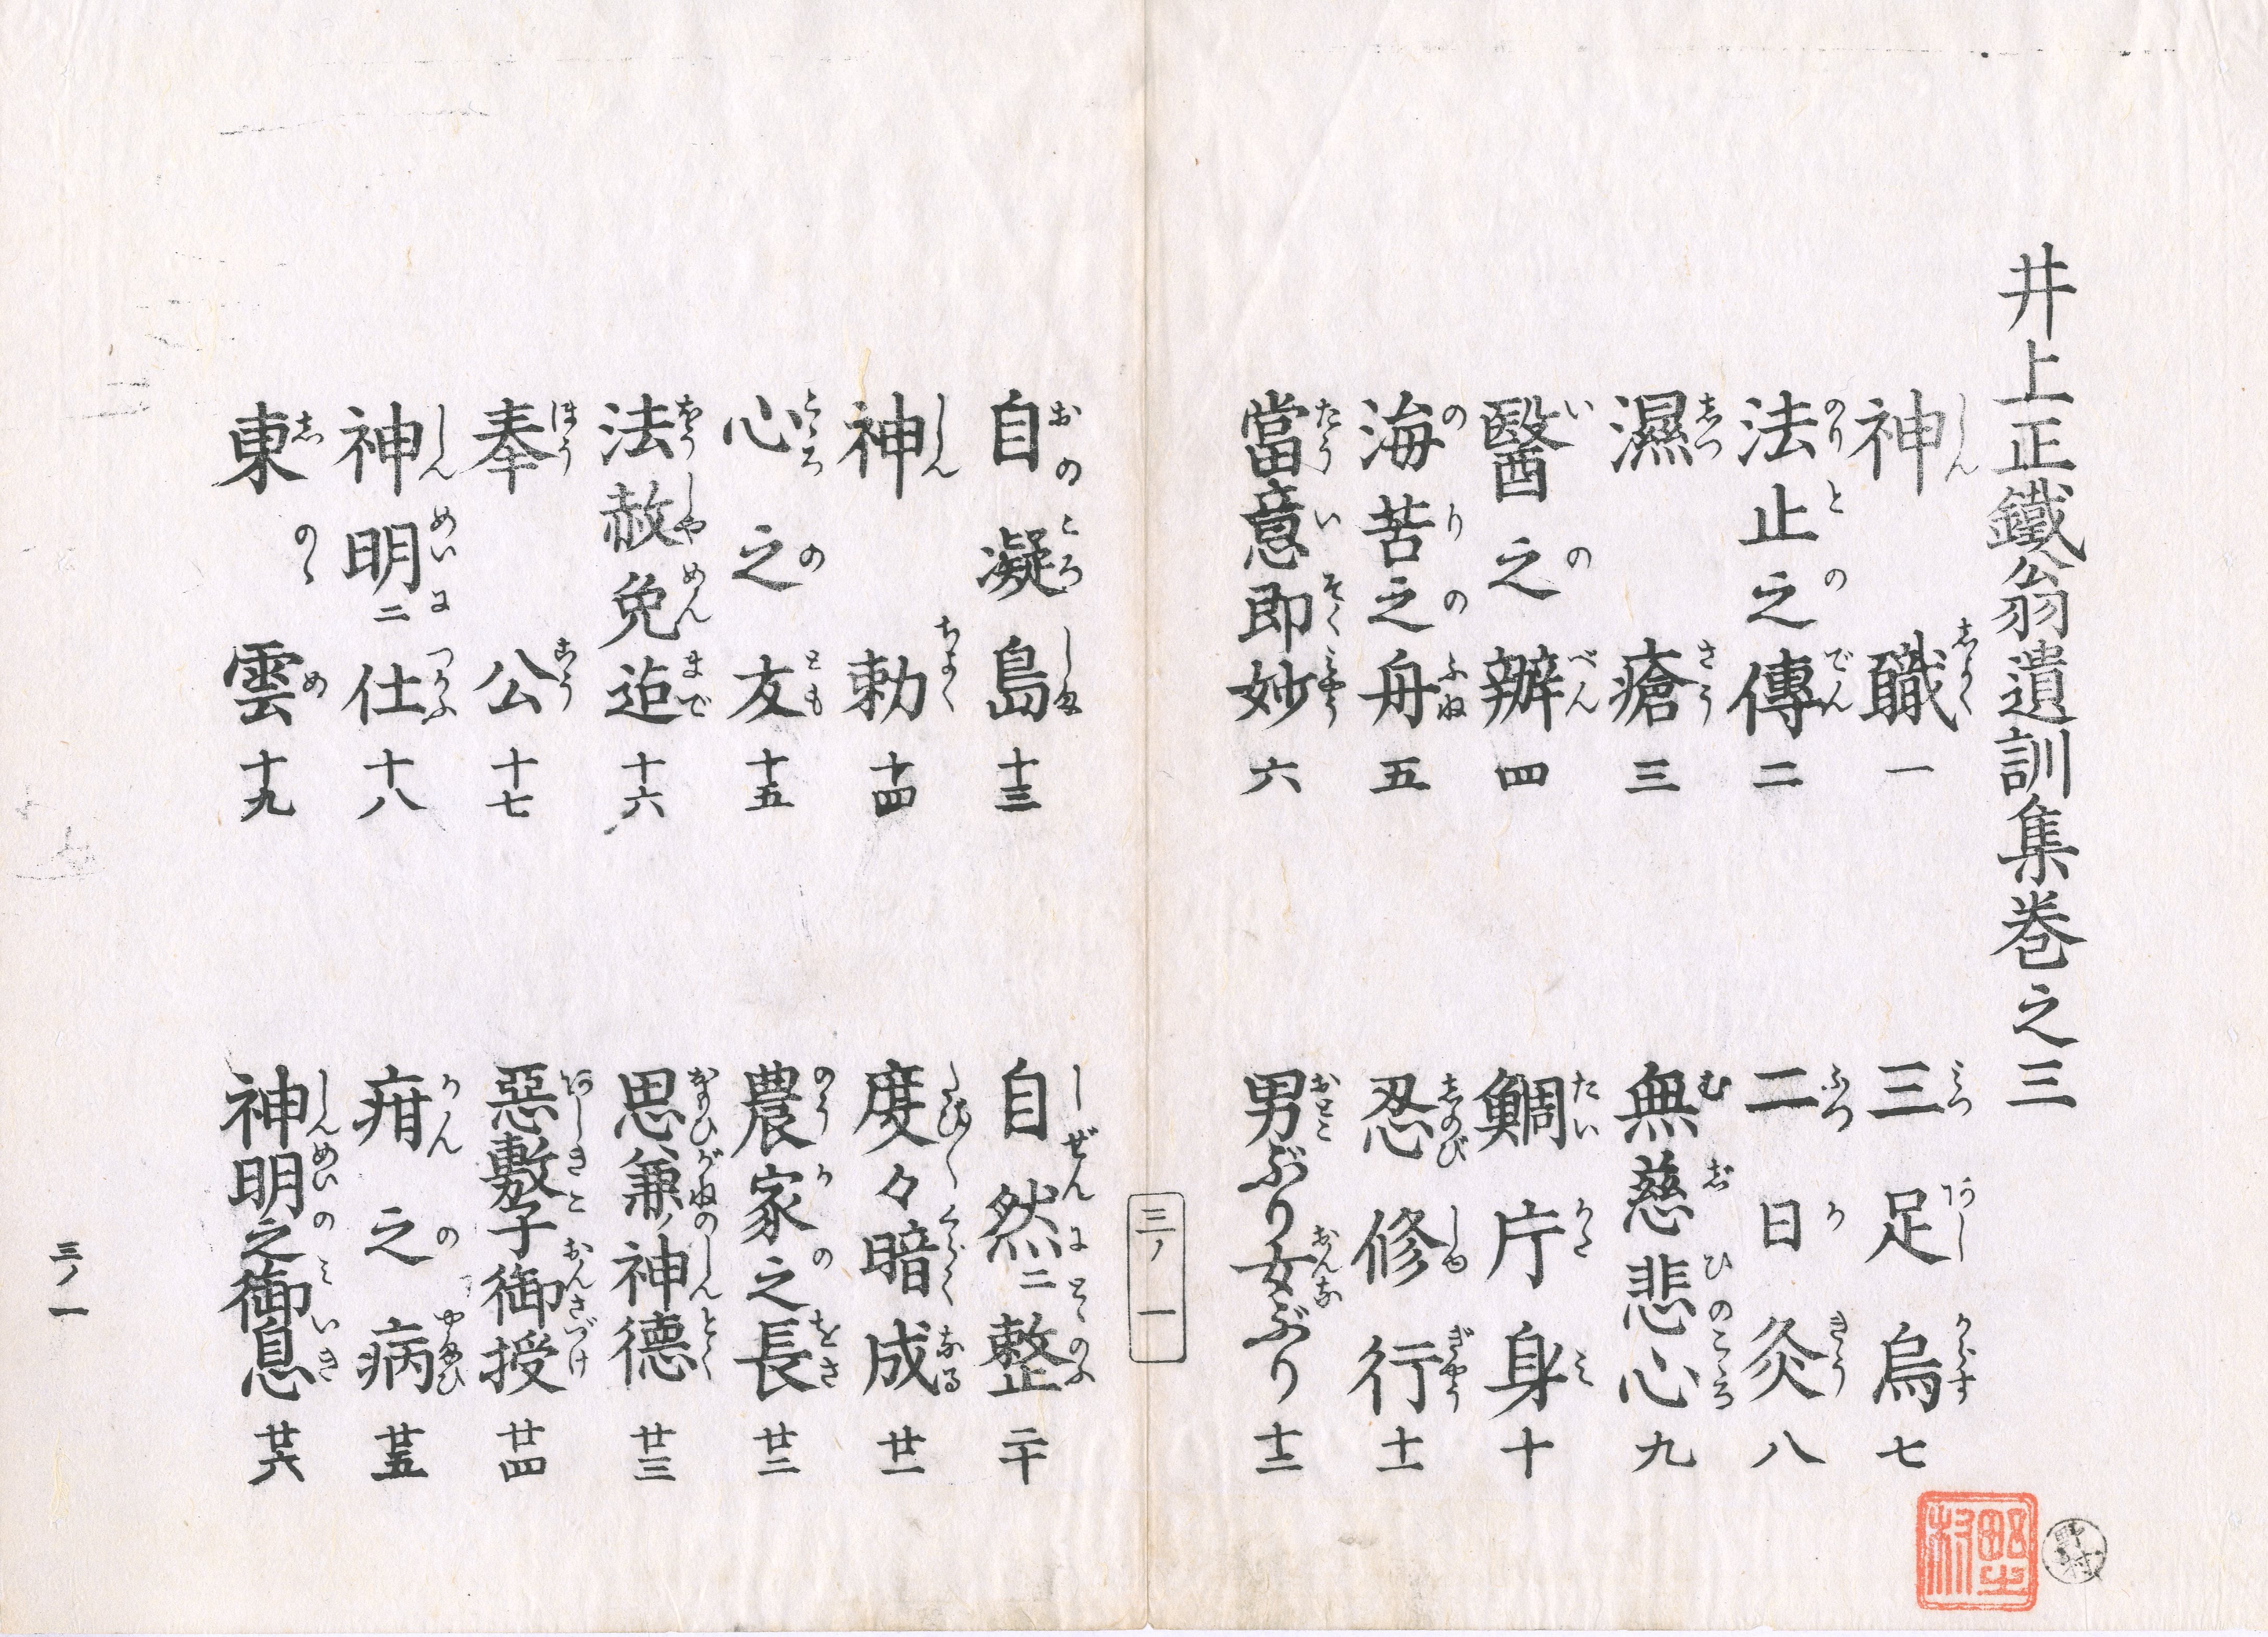 井上正鐵翁遺訓集巻之三
神職 一
法止之傳 二
濕瘡 三
醫之辨 四
海苦之舟 五
當意即妙 六
三足烏 七
二日灸 八
無慈悲心 九
鯛庁身 十
忍修行 十一
男ぶり女ぶり 十二
三ノ一
自凝島 十三
神勅 十四
心之友 十五
法赦免迠 十六
奉公 十七
神明ニ仕 十八
東雲 十九
自然ニ整 二十
度々暗成 廿一
農家之長 廿二
思兼ノ神德 廿三
惡敷子御授 廿四
疳之病 廿五
神明之御息 廿六
三ノ一
野村